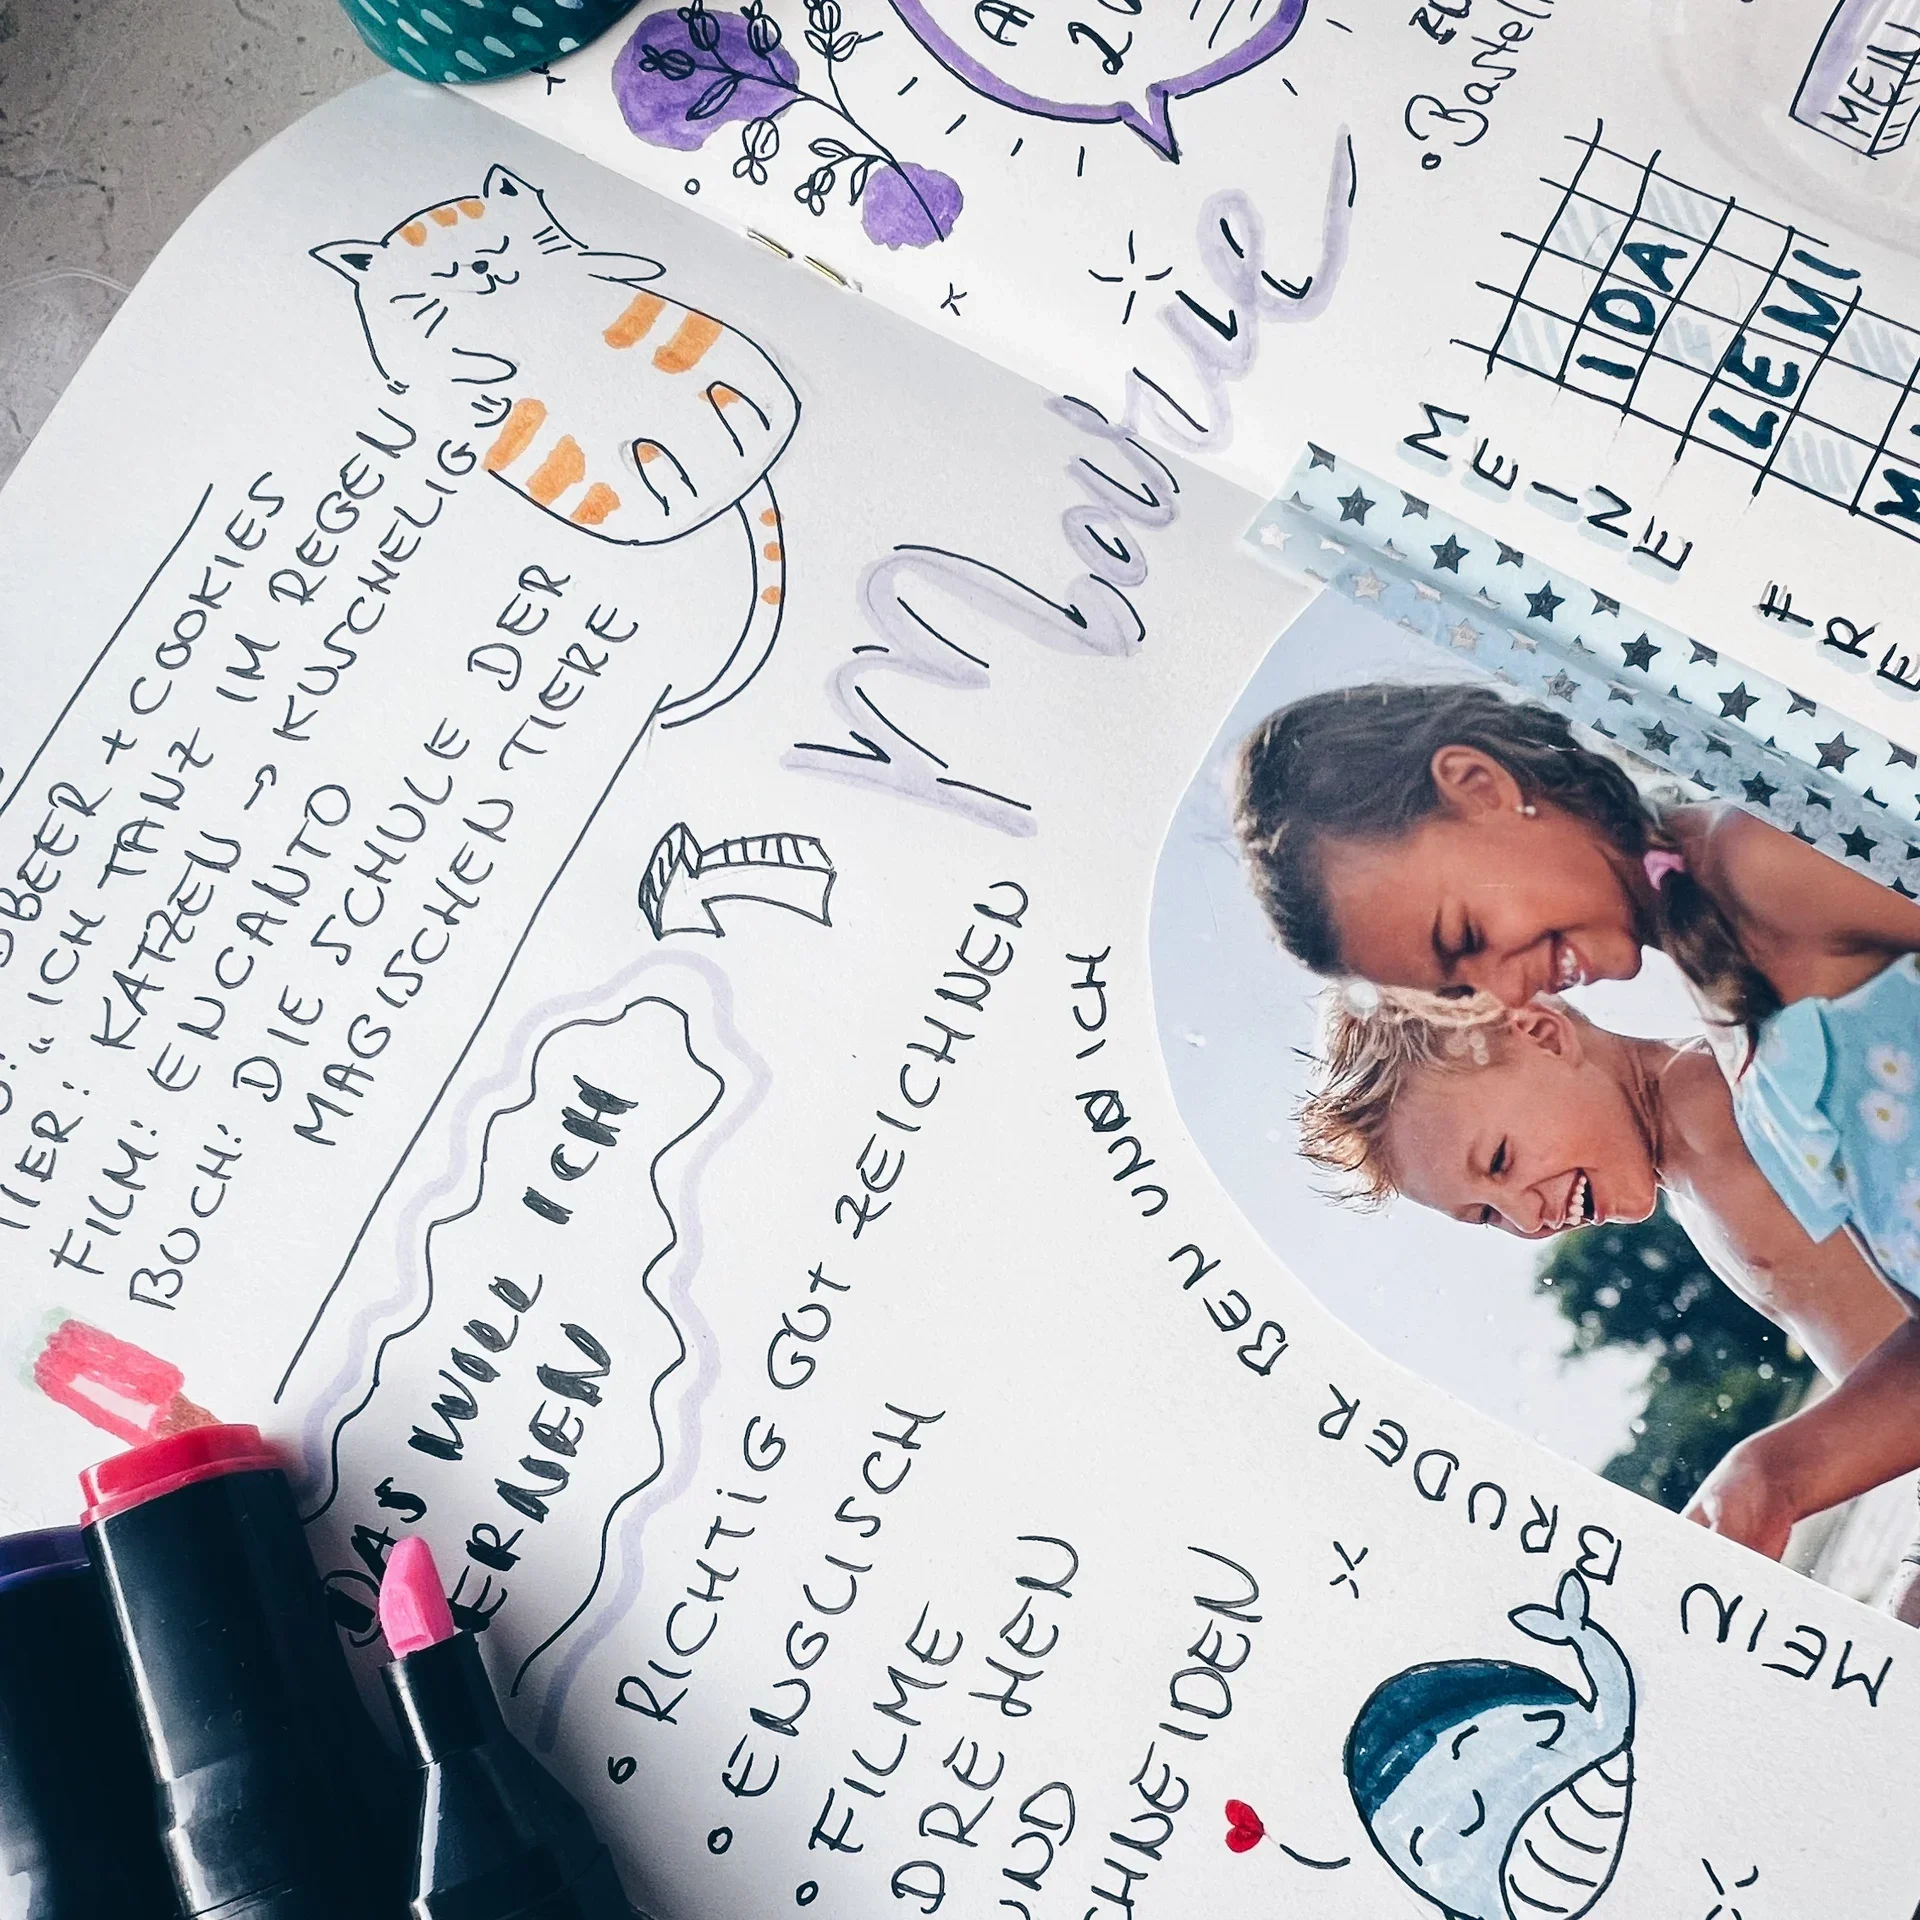 BEER + COOKIES
"ICH TANZ IM REGEN"
TIER: KATZEN → KUSCHELIG
FILM: ENCANTO
BUCH: DIE SCHULE DER
MAGISCHEN TIERE
DAS WILL ICH
ERNEN
• RICHTIG GUT ZEICHNEN
• ENGLISCH
• FILME
DREHEN
UND
CHNEIDEN
Marie
MEIN BRUDER BEN UND ICH
MEINE FRE
IDA
LEMI
• Bastel
MEIN